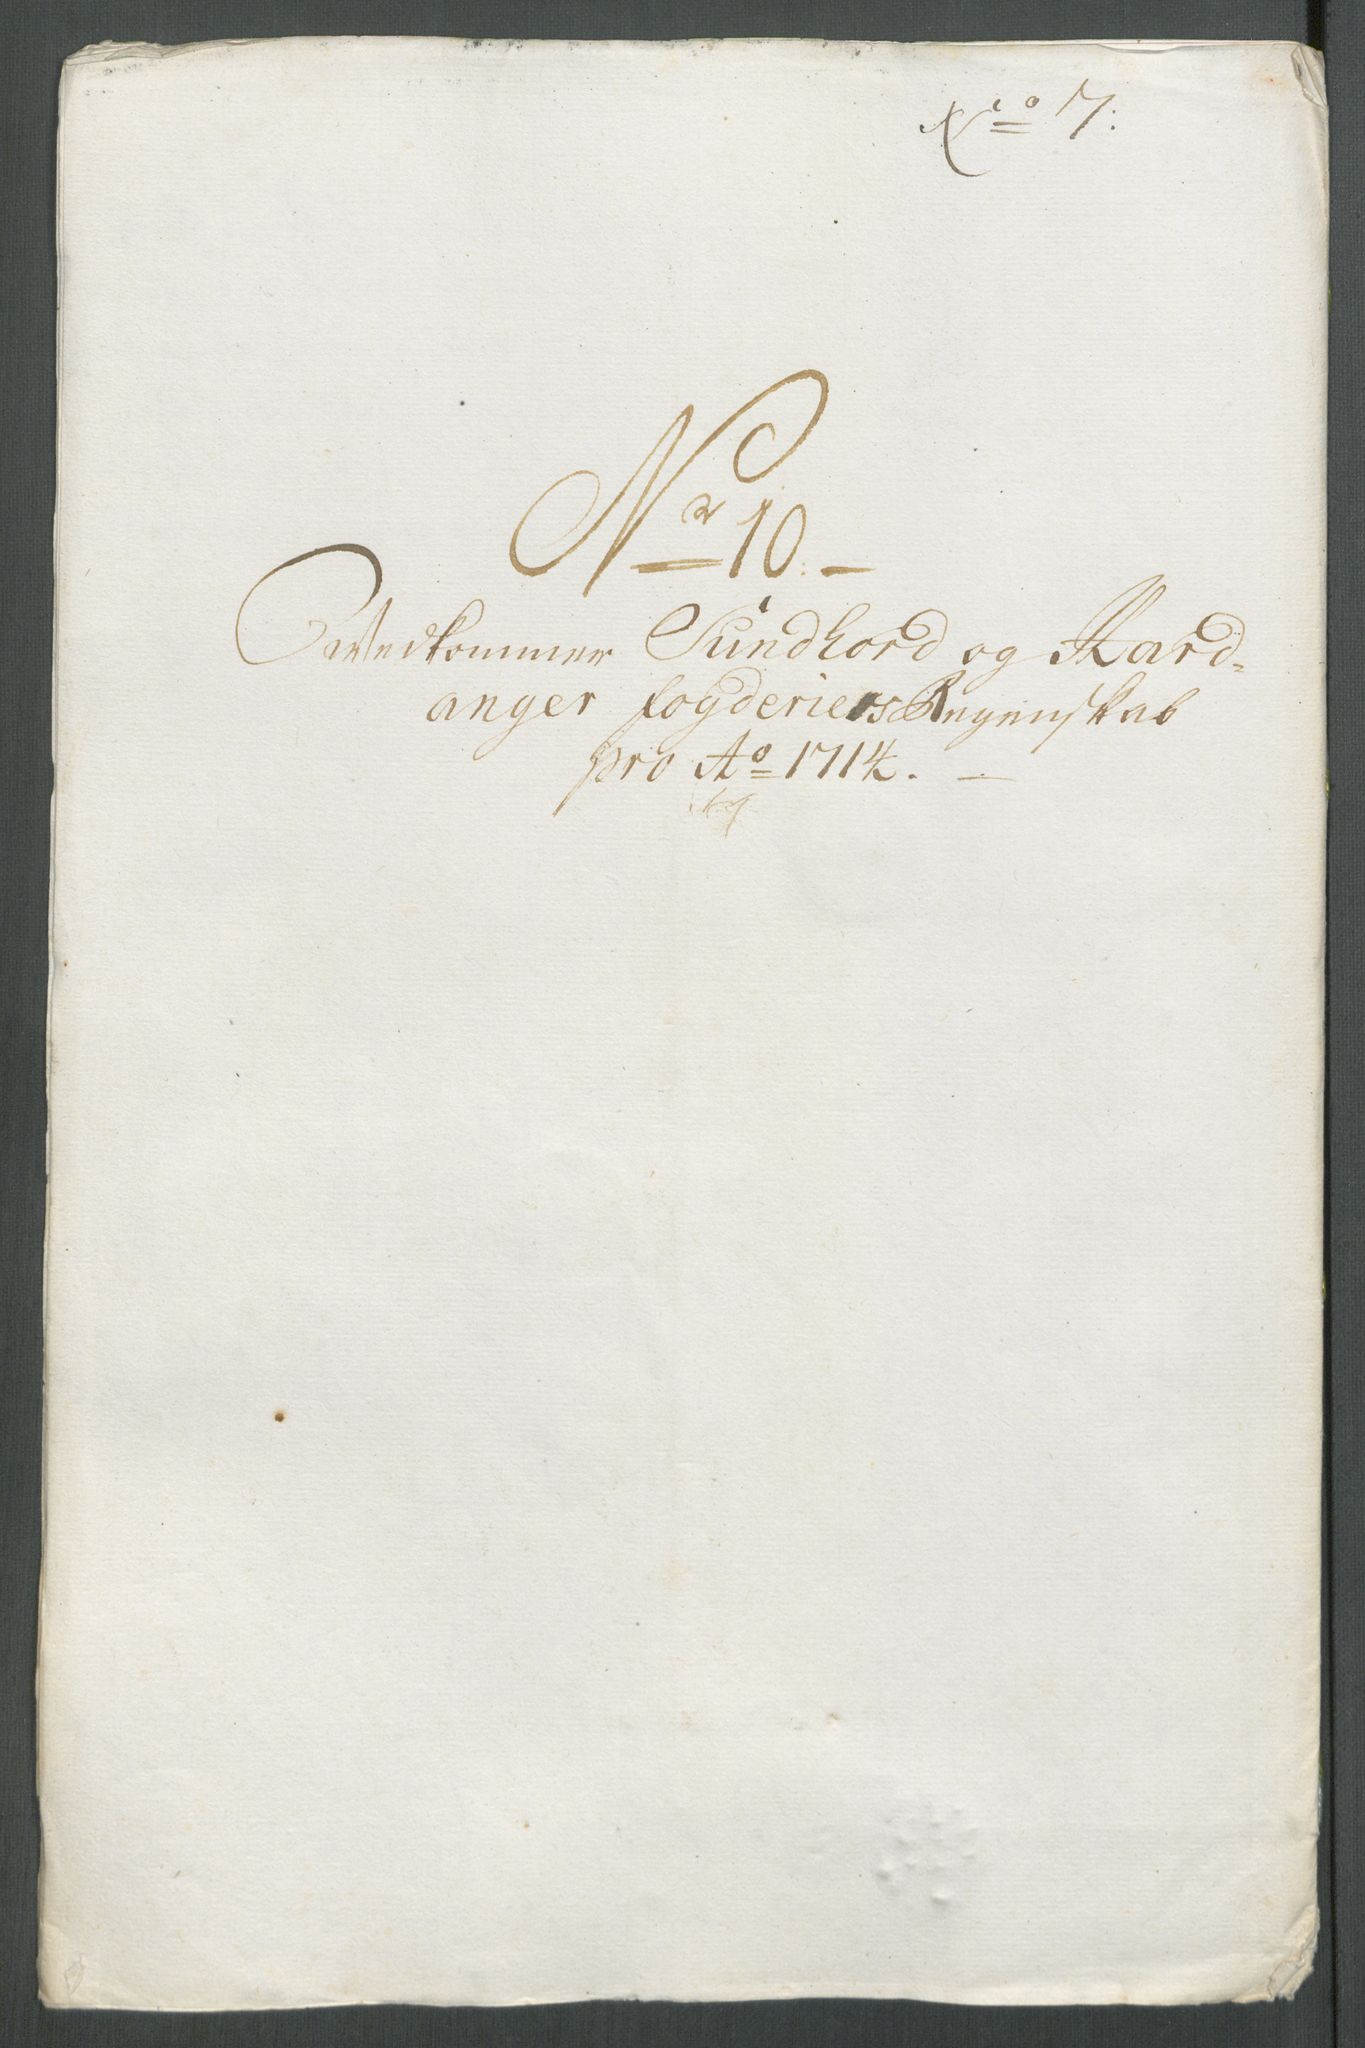 No 7:
Nr 10.
Vedkommer Sundhord og Hard-
anger fogderiers Regenskab
pro Ao 1714.